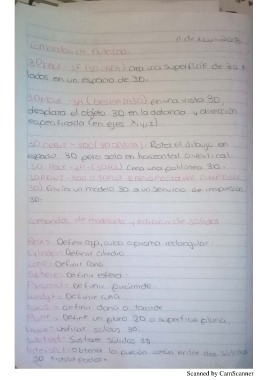 Comandos de
3D FACE - 3F (3D CARA) crea una superficie de 3 o 4
lados en un espacio de 3D.
3D MOVE - 3M ( 3D) en una vista 3D,
desplaza el objeto 3D en la distancia y dirección
especificada (en ejes X,y,z).
Rota el dibujo en
espacio 3D pero solo en horizontal o vertical.
Crea una polilinea 3D
3D) Envia un modelo 3D a un servicio de impresion
3D.
Comandos de modelado y edición de sólidos
Box: Definir caja, cubo o prisma rectangular.
Cylinder: Definir cilindro
Cone: Definir cono
Sphere: Definir esfera
Pyramid: Definir piramide
Wedge: Definir cuña
Torus: Definir dona o toroide
Define un plano 2D o superficie plana.
Union: Unificar solidos 3D.
Subtract: Sustrae sólidos 3D
Intersect: Obtiene la porción común entre dos sólidos
3D
Scanned by CamScanner